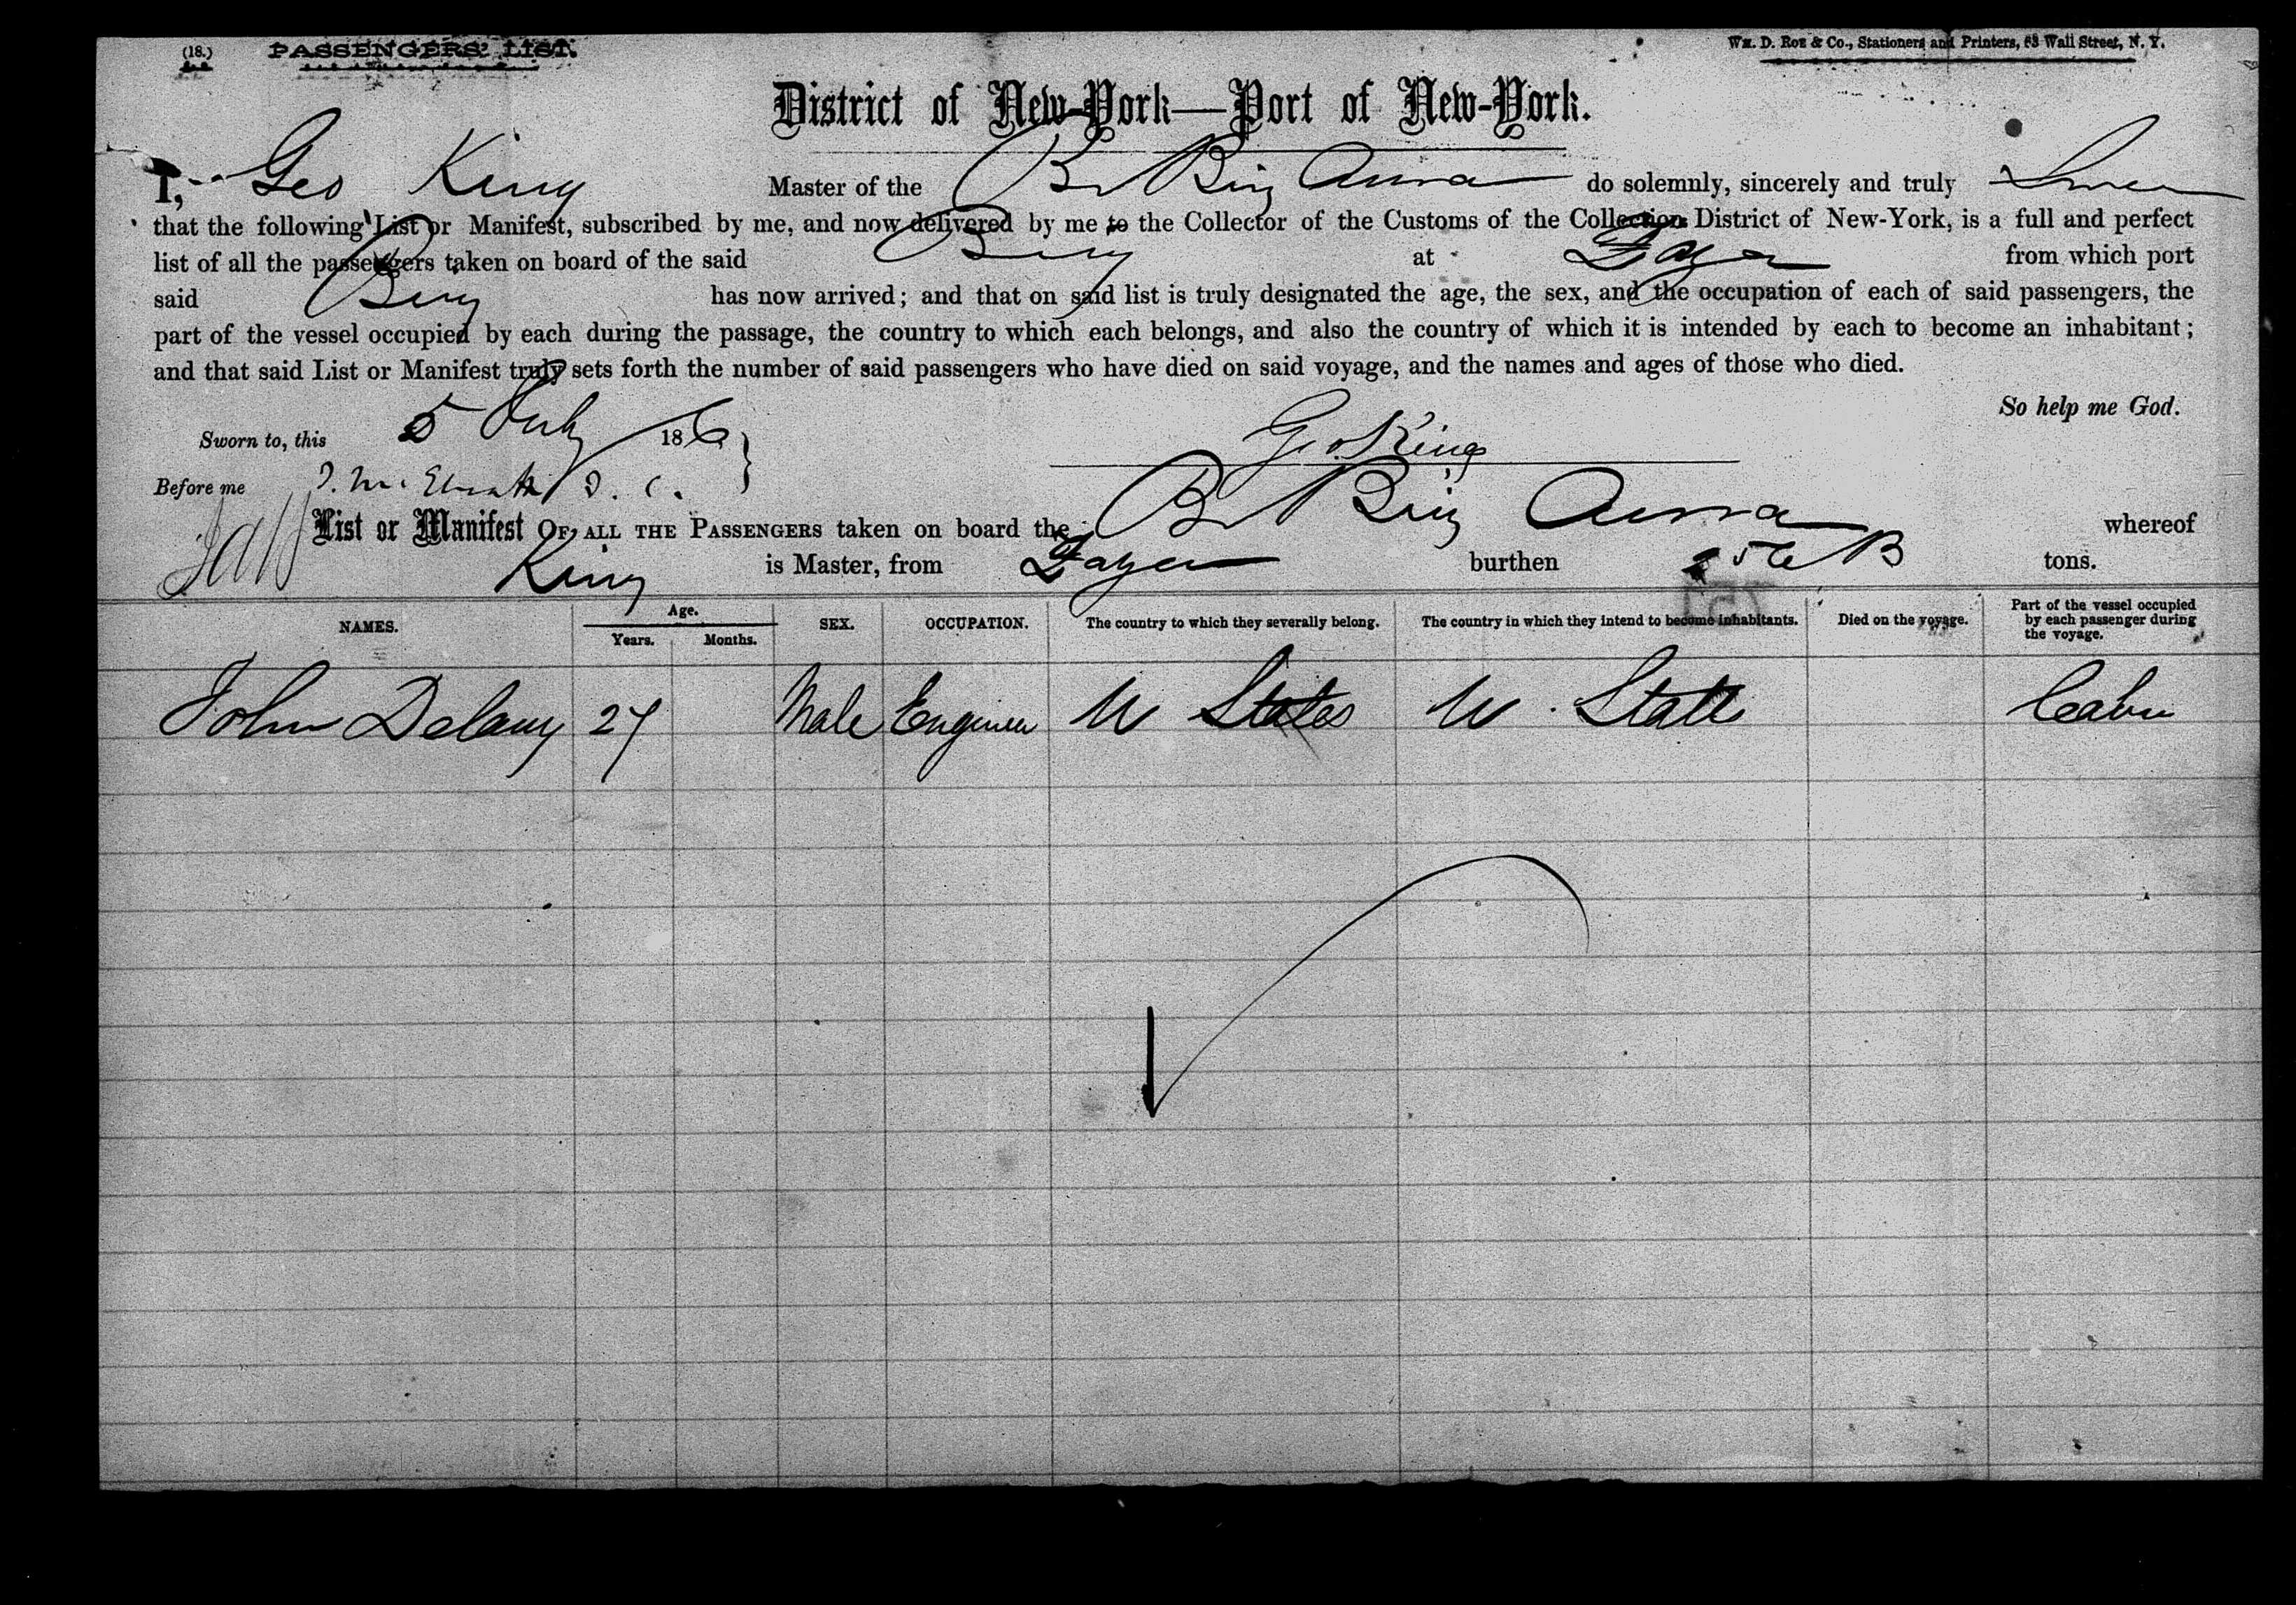 (18.) PASSENGERS' LIST. Wm. D. Roe & Co., Stationers and Printers, 63 Wall Street, N. Y.
District of New-York—Port of New-York.
I, Geo King Master of the Br Brig Anna do solemnly, sincerely and truly Swear
that the following List or Manifest, subscribed by me, and now delivered by me to the Collector of the Customs of the Collection District of New-York, is a full and perfect
list of all the passengers taken on board of the said Brig at from which port
said Brig has now arrived; and that on said list is truly designated the age, the sex, and the occupation of each of said passengers, the
part of the vessel occupied by each during the passage, the country to which each belongs, and also the country of which it is intended by each to become an inhabitant;
and that said List or Manifest truly sets forth the number of said passengers who have died on said voyage, and the names and ages of those who died.
So help me God.
Sworn to, this 5 July 186
Geo King
Before me D. C.
List or Manifest OF ALL THE PASSENGERS taken on board the Br Brig Anna whereof
King is Master, from burthen tons.
NAMES. Age. Years. Months. SEX. OCCUPATION. The country to which they severally belong. The country in which they intend to become inhabitants. Died on the voyage. Part of the vessel occupied by each passenger during the voyage.
John Delany 27 Male Engineer U States U. States Cabin